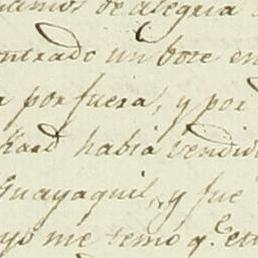 de alegria
ontrado un bote en
por fuera, y por
Kard habia vendid
Guayaquil, y fue
yo me temo q.e est